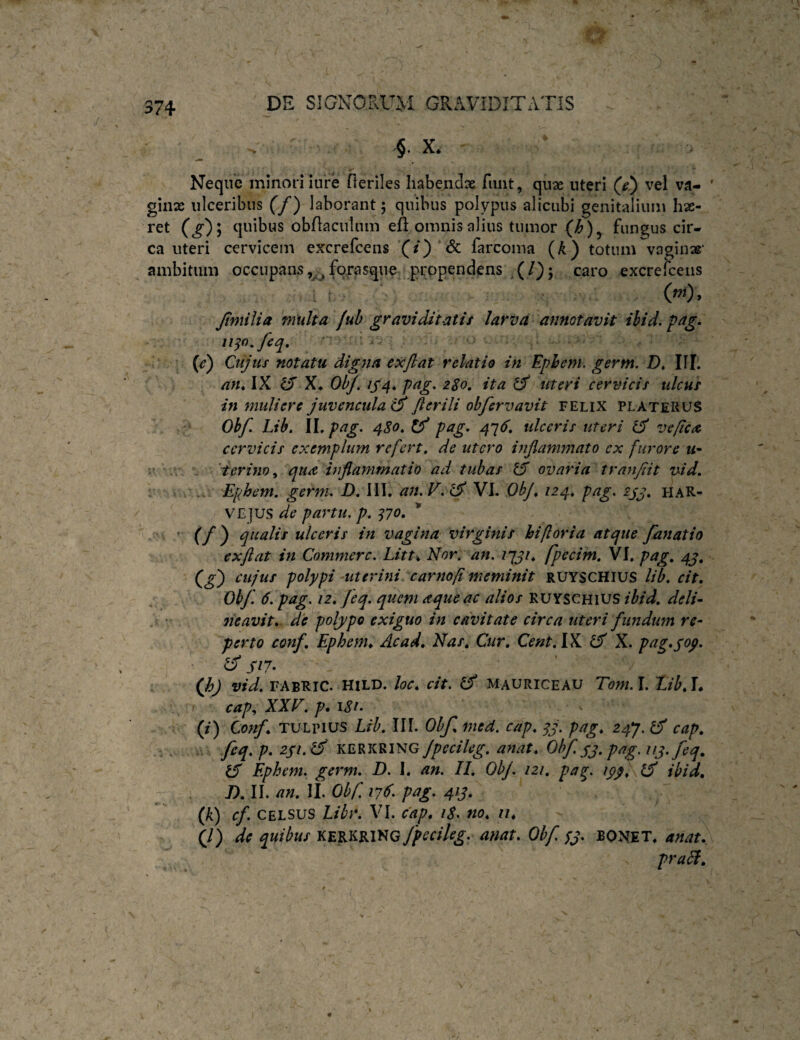 374 DE SIGNORUM GRAVIDITATIS
§. X.
Neque minori iure ſteriles habendæ ſunt, quæ uteri (e) vel va-
ginæ ulceribus (f) laborant; quibus polypus alicubi genitalium hæ-
ret (g); quibus obſtaculum eſt omnis alius tumor (h), fungus cir-
ca uteri cervicem excreſcens (i) & ſarcoma (k) totum vaginæ
ambitum occupans, forasque propendens (l); caro excreſcens
(m),
ſimilia multa ſub graviditatis larva annotavit ibid. pag.
1130. ſeq.
(e) Cujus notatu digna exſtat relatio in Ephem. germ. D. III.
an. IX & X. Obſ. 154. pag. 280. ita & uteri cervicis ulcus
in muliere juvencula & ſterili obſervavit FELIX PLATERUS
Obſ. Lib. II. pag. 480. & pag. 476. ulceris uteri & veſicæ
cervicis exemplum refert. de utero inflammato ex furore u-
terino, quæ inflammatio ad tubas & ovaria tranſiit vid.
Ephem. germ. D. III. an. V. & VI. Obſ. 124. pag. 253. HAR-
VEJUS de partu. p. 370.
(f) qualis ulceris in vagina virginis hiſtoria atque ſanatio
exſtat in Commerc. Litt. Nor. an. 1731. ſpecim. VI. pag. 43.
(g) cujus polypi uterini carnoſi meminit RUYSCHIUS lib. cit.
Obſ. 6. pag. 12. ſeq. quem æque ac alios RUYSCHIUS ibid. deli-
neavit. de polypo exiguo in cavitate circa uteri fundum re-
perto conf. Ephem. Acad. Nas. Cur. Cent. IX & X. pag. 509.
& 517.
(h) vid. FABRIC. HILD. loc. cit. & MAURICEAU Tom. I. Lib. I.
cap, XXV. p. 181.
(i) Conf. TULPIUS Lib. III. Obſ. med. cap. 33. pag. 247. & cap.
ſeq. p. 251. & KERKRING ſpecileg. anat. Obſ. 53. pag. 113. ſeq.
& Ephem. germ. D. I. an. II. Obſ. 121. pag. 199. & ibid.
D. II. an. II. Obſ. 176. pag. 413.
(k) cf. CELSUS Libr. VI. cap. 18. no. 11.
(l) de quibus KERKRING ſpecileg. anat. Obſ. 53. BONET. anat.
pract.